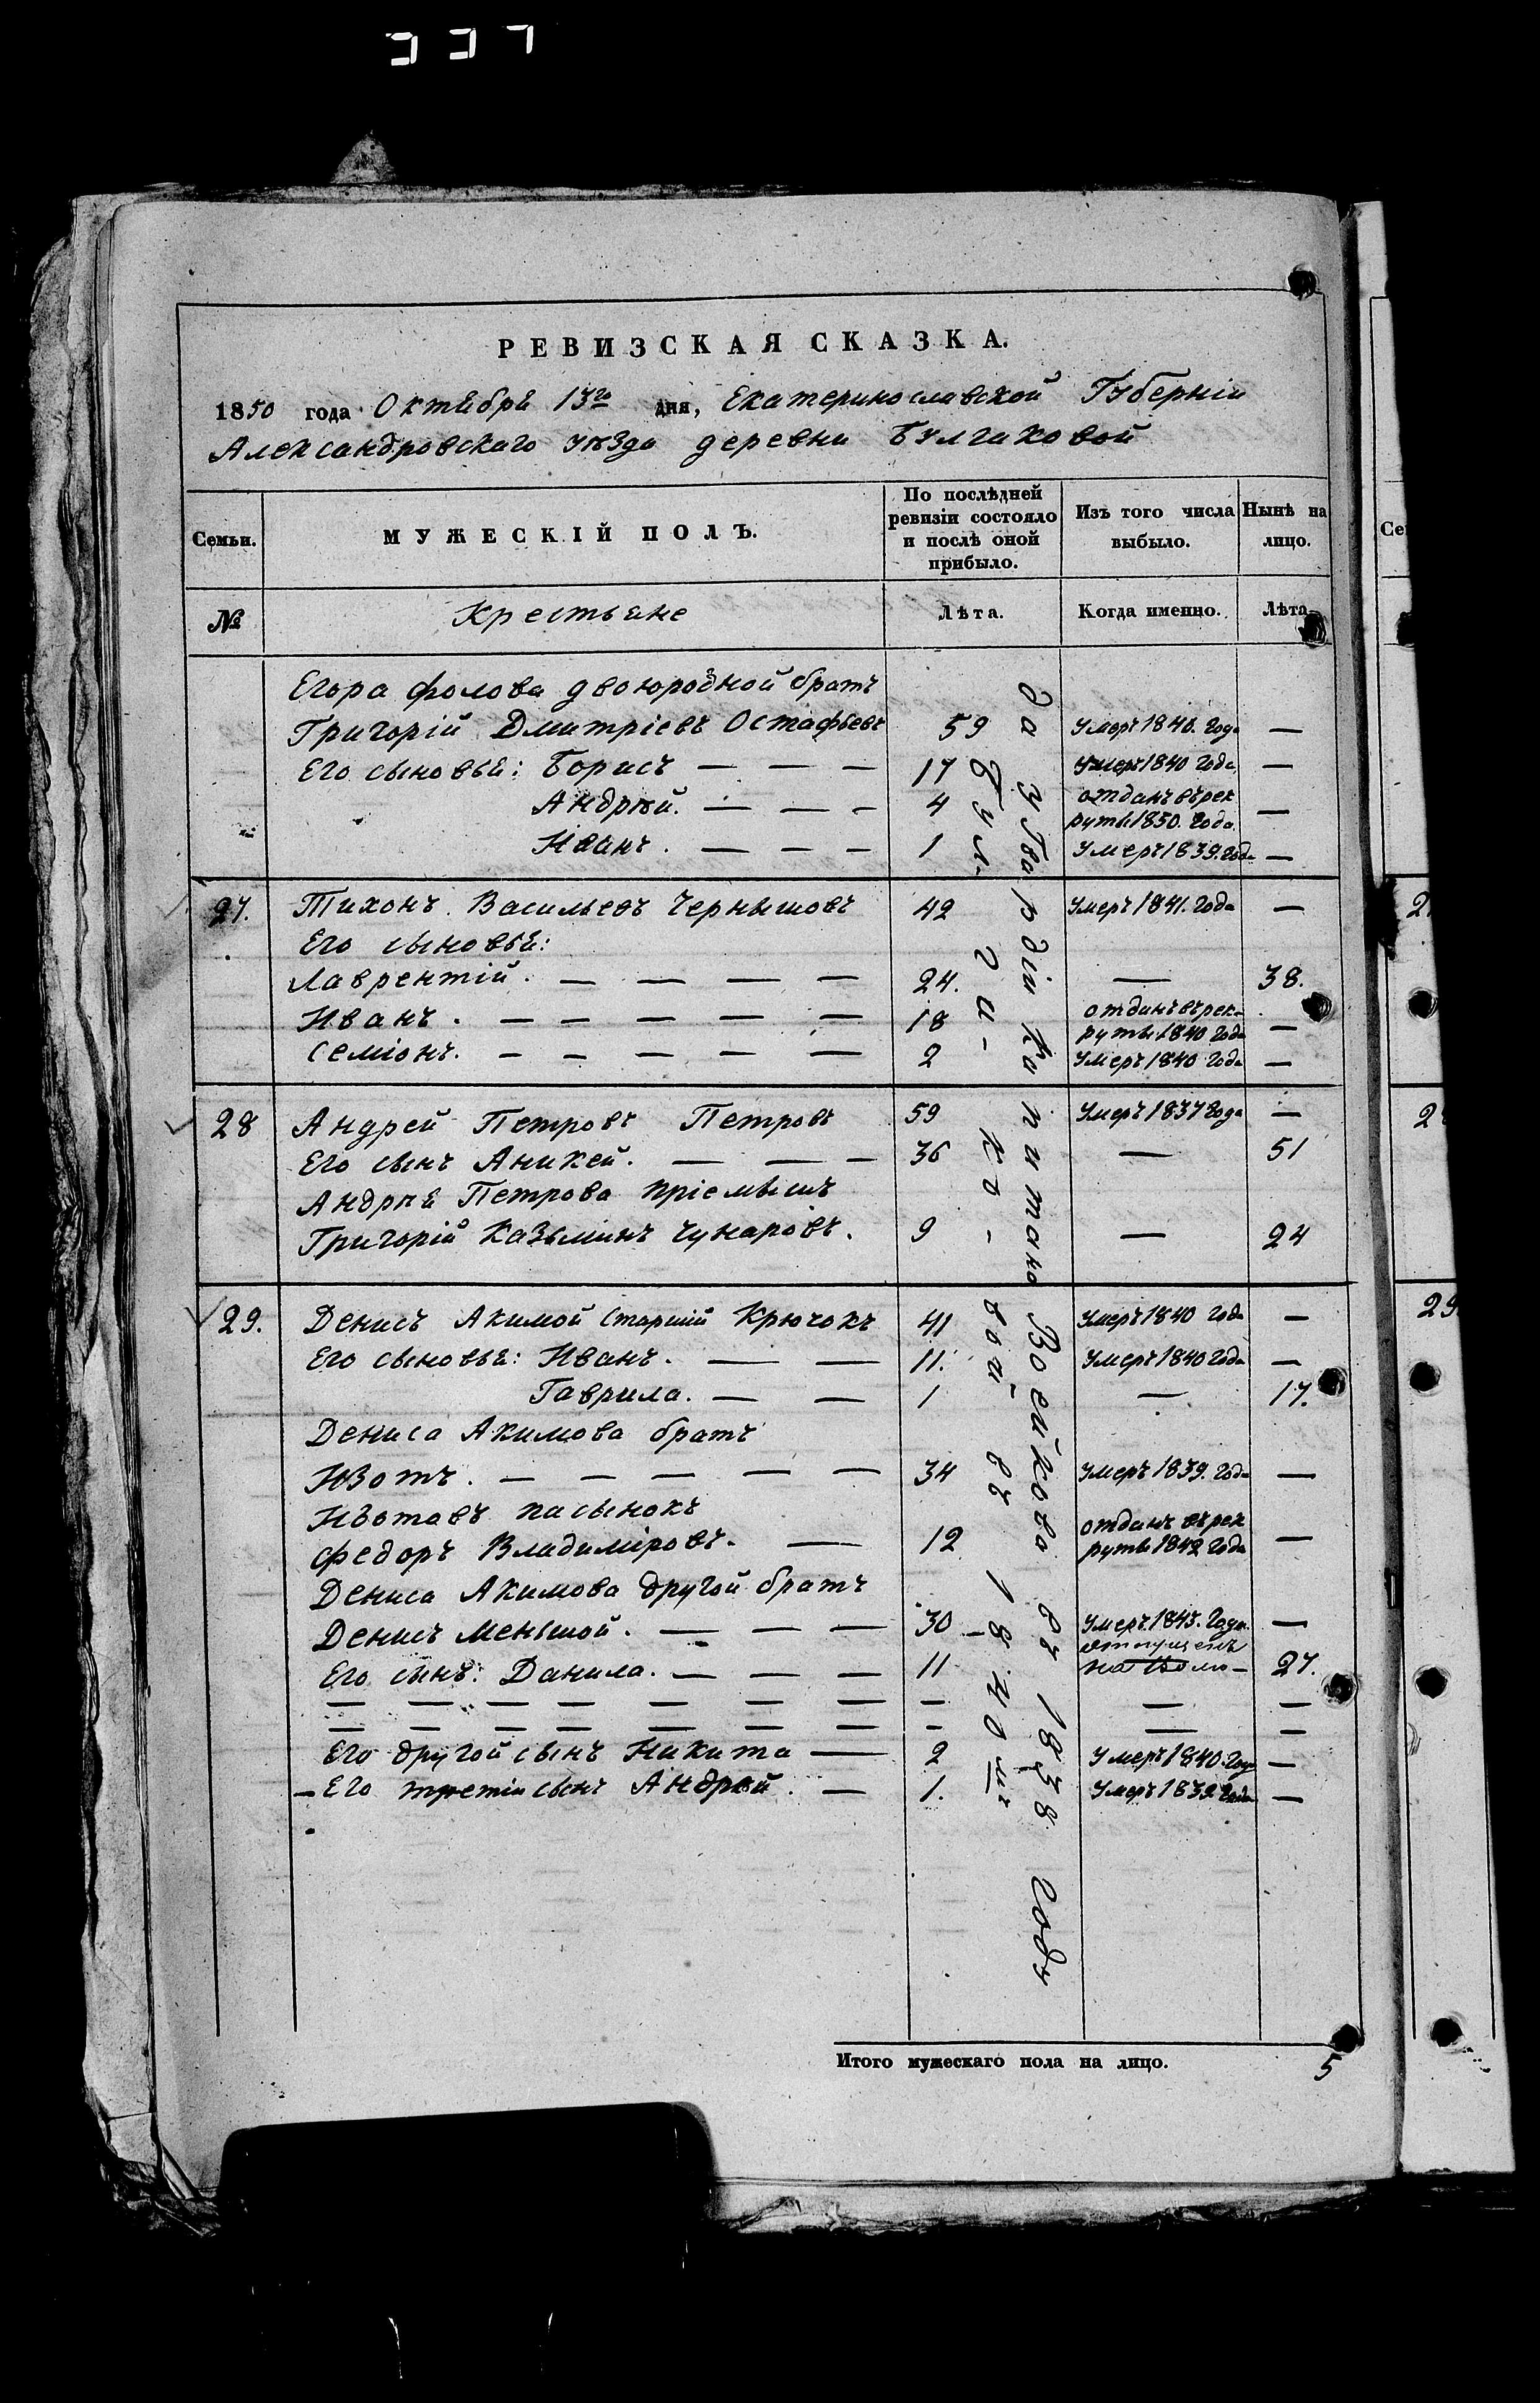 337
РЕВИЗСКАЯ СКАЗКА.
1850 года Октября 13го дня, Екатеринославской Губерніи
Александровскаго уѣзда деревни Булгаковой
Семьи.
МУЖЕСКІЙ ПОЛЪ.
По послѣдней ревизіи состояло и послѣ оной прибыло.
Изъ того числа выбыло.
Нынѣ на лицо.
№ Крестьяне Лѣта. Когда именно. Лѣта
Егора Фолова двоюродной братъ
Григорій Дмитріевъ Остафьевъ 59 умеръ года —
Его сыновья: Борисъ — — — 17 умеръ 1840 года —
Андрѣй. — — — 4 отданъ въ рек
руты 1850. года —
Иванъ. — — — 1 Умеръ 1839. года —
27. Тихонъ Васильевъ Чернышовъ 42 Умеръ 1841. года —
Его сыновья:
Лаврентій. — — — — 24. — 38.
Иванъ. — — — — — 18 отданъ въ рек-
руты 1840 года —
Семіонъ. — — — — — 2 Умеръ 1840 года —
28 Андрей Петровъ Петровъ 59 Умеръ 1837 года —
Его сынъ Аникей. — — — 36 — 51
Андрѣя Петрова пріемышъ
Григорій Казьминъ Чунаровъ. 9 — 24
29. Денисъ Акимой Старшій Крючокъ 41 Умеръ 1840 года —
Его сыновья: Иванъ. — — 11. Умеръ 1840 года —
Гаврила. — — 1 — 17.
Дениса Акимова братъ
Изотъ. — — — — — 34 Умеръ 1839. года —
Изотовъ пасынокъ
Федоръ Владиміровъ. — 12 отданъ въ рек
руты 1842 года —
Дениса Акимова другой братъ
Денисъ Меньшой. — — — 30 Умеръ 1843. года. —
отпущенъ
Его сынъ: Данила. — — — 11 на Волю — 27.
— — — — — — — — — —
— — — — — — — — — —
Его другой сынъ Никита — 2 Умеръ 1840. года —
— Его третій сынъ Андрѣй. — 1. Умеръ 1839 года —
за Гвардіи Капитана Воейкова въ 1838 году
Булгаковой въ 1840мъ
Итого мужескаго пола на лицо. 5
Се
29